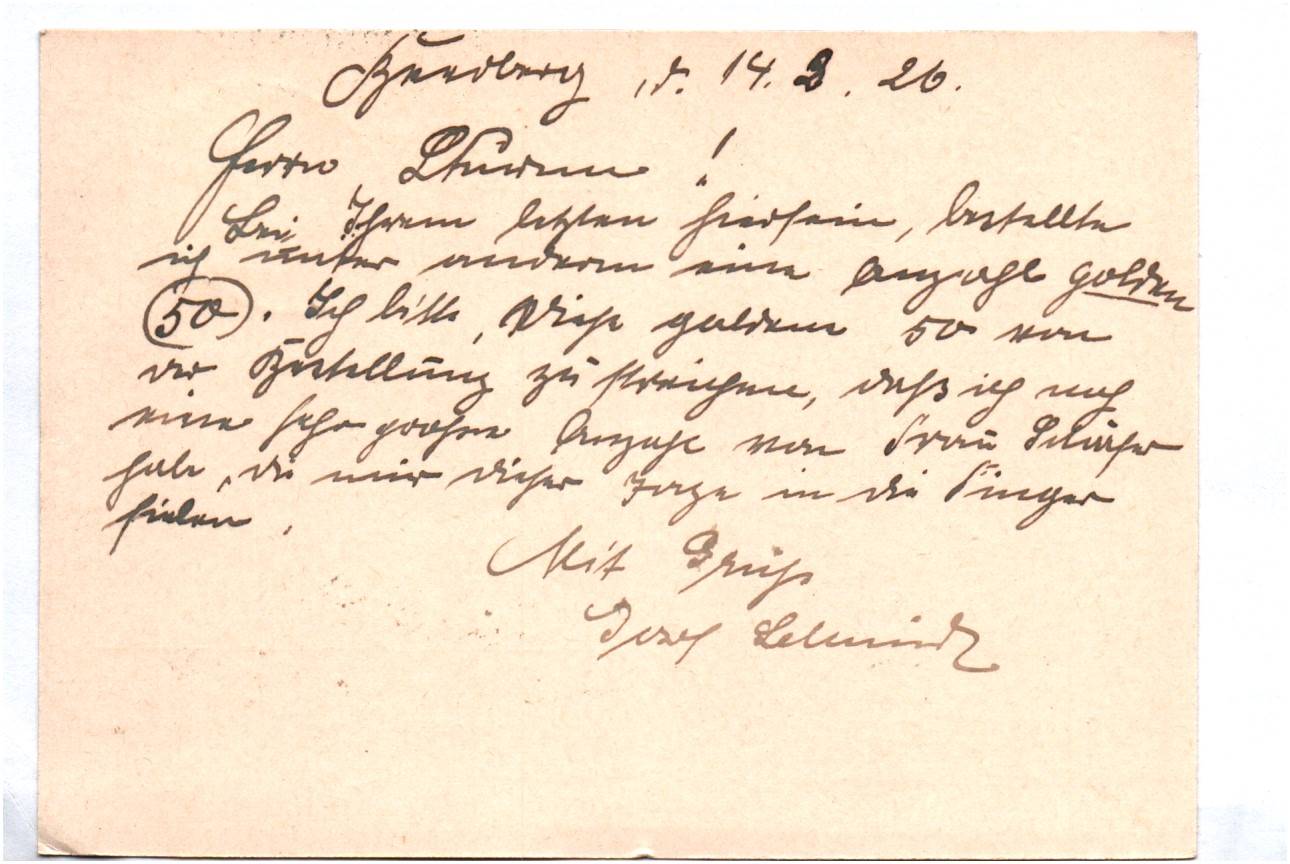 d. 14. 3. 26.
Herrn !
Bei Ihrem letzten Hiersein, bestellte
ich unter anderem eine Anzahl golden
50. Ich bitte, diese goldene 50 von
der Bestellung zu streichen, daß ich noch
eine sehr grohse Anzahl von Frau
habe, die mir dieser Tage in die Finger
fielen.
Mit Gruß
Josef Schmidt